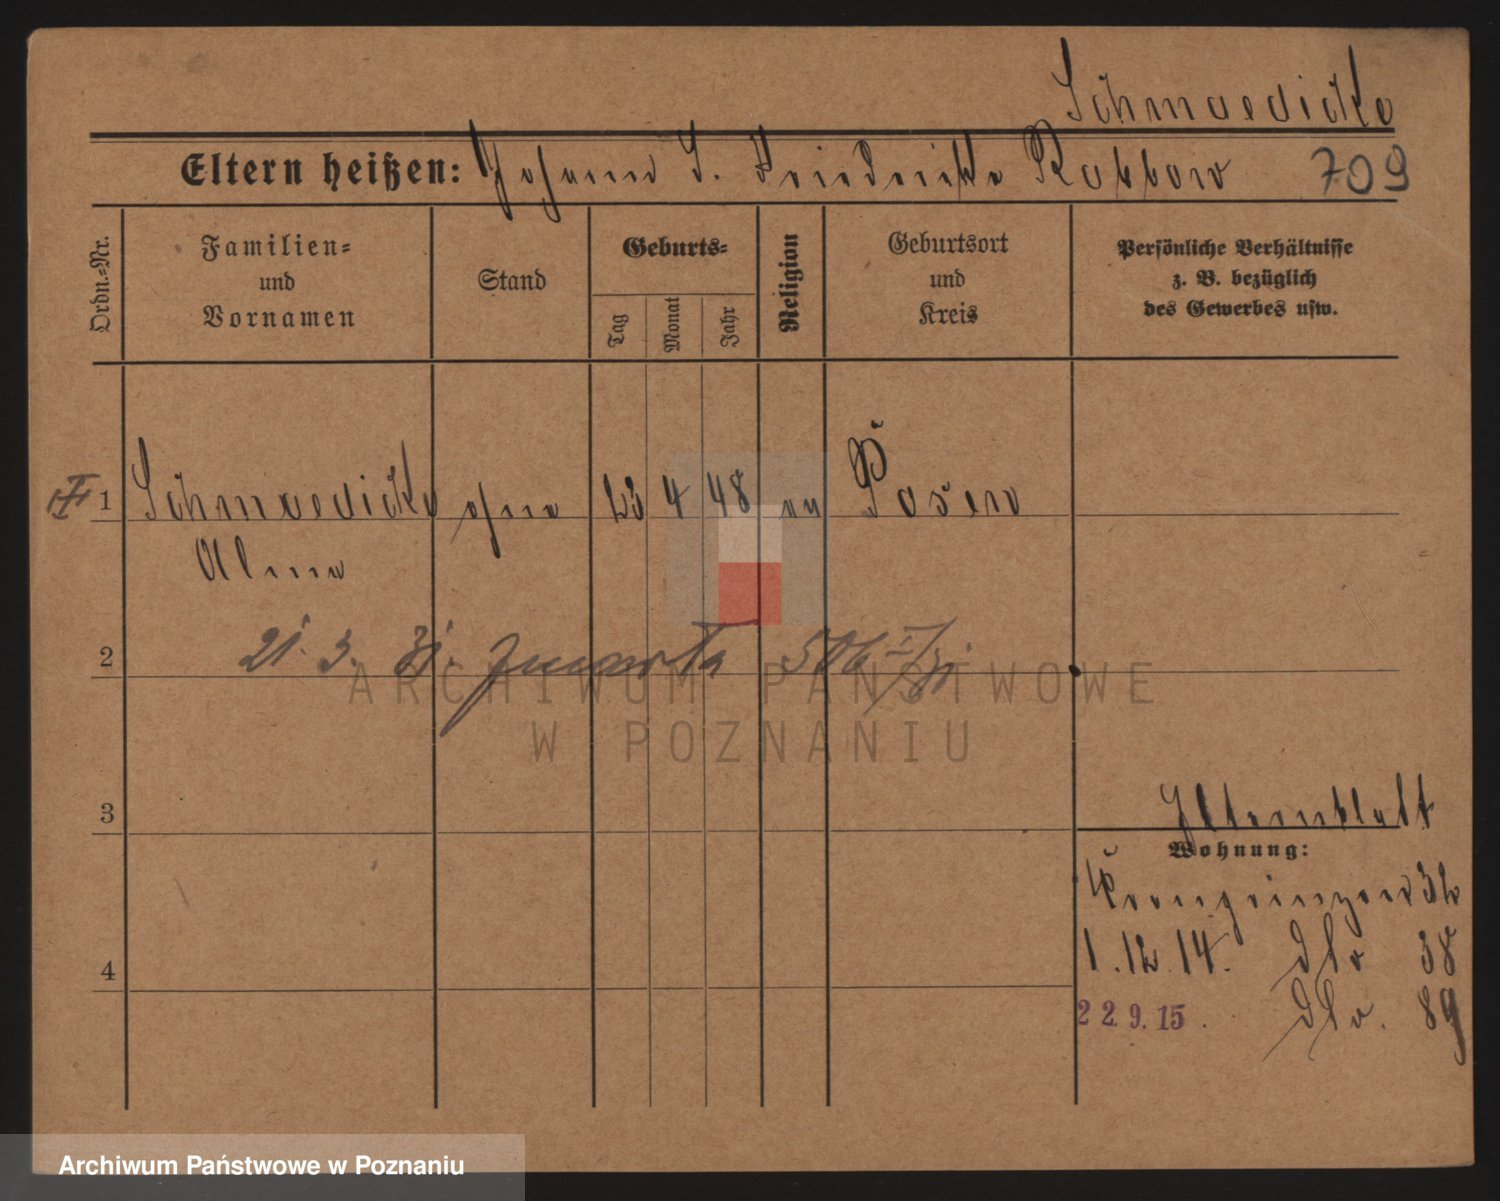 Schmaedicke
Eltern heißen: Johann S. Friederike Rabbow 709
Ordn.-Nr.
Familien- und Vornamen
Stand
Geburts-
Tag
Monat
Jahr
Religion
Geburtsort und Kreis
Persönliche Verhältnisse
z. B. bezüglich
des Gewerbes usw.
1 Schmaedicke ohne 23 4 48 ev Posen
Alma
2 21. 3. 31. zmarła 506 I/31
3
Wohnung:
Kronprinzen 32
4
1. 12. 14. dto 38
22. 9. 15. dto. 89
ARCHIWUM PAŃSTWOWE
W POZNANIU
Archiwum Państwowe w Poznaniu